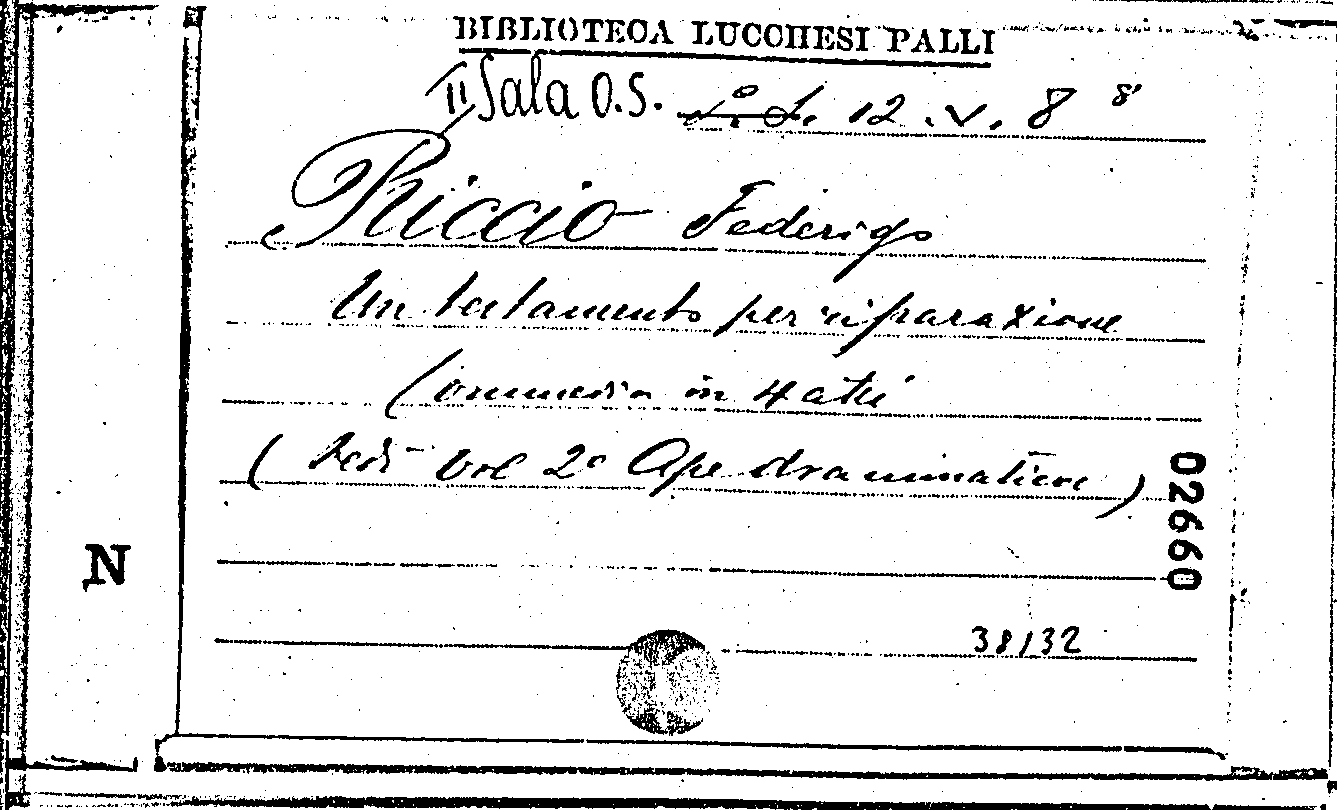 BIBLIOTECA LUCCHESI PALLI
II Sala O.S. L.L. 12. V. 8 8'
Riccio Federigo
Un testamento per riparazione
Commedia in 4 atti
(Vedi vol 2° Ape drammatica)
02660
N
38132